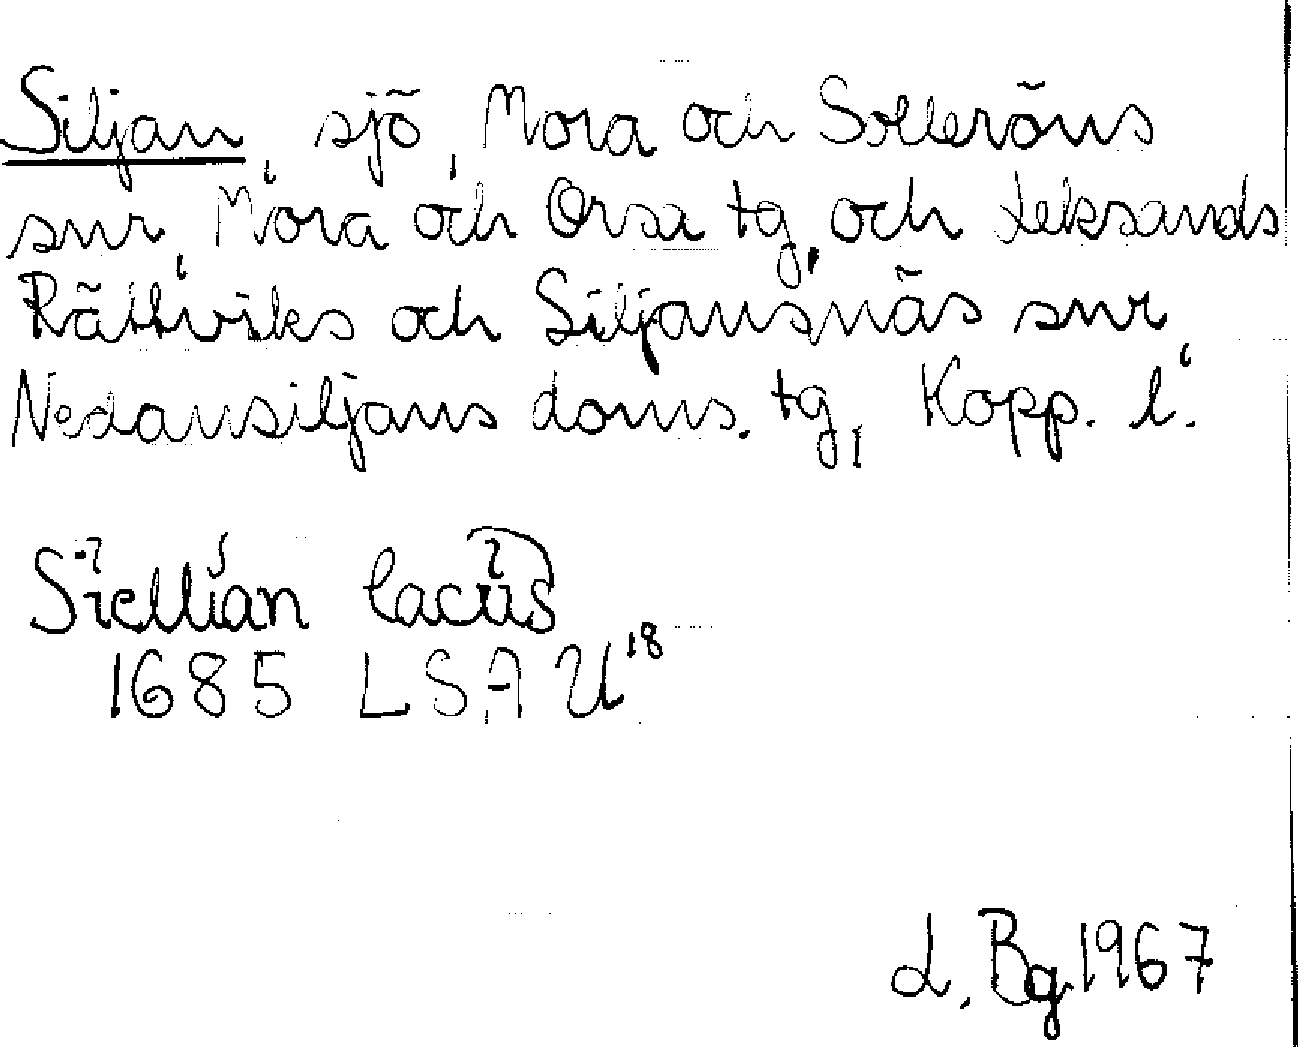 Siljan, sjö, Mora och Solleröns
snr, Mora och Orsa tg, och Leksands
Rättviks och Siljansnäs snr,
Nedansiljans doms. tg, Kopp. l.
Siellian lacus
1685 LSA U18
L. Bg 1967